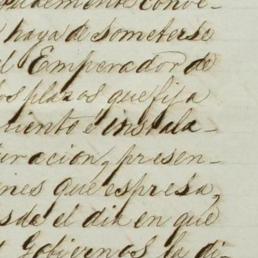 udemente conve-
haya de someterse
el Emperador de
os plazos que fija
uiento é instala-
uracion, presen-
nes que espresa,
sde el dia en que
Gobiernos la di-